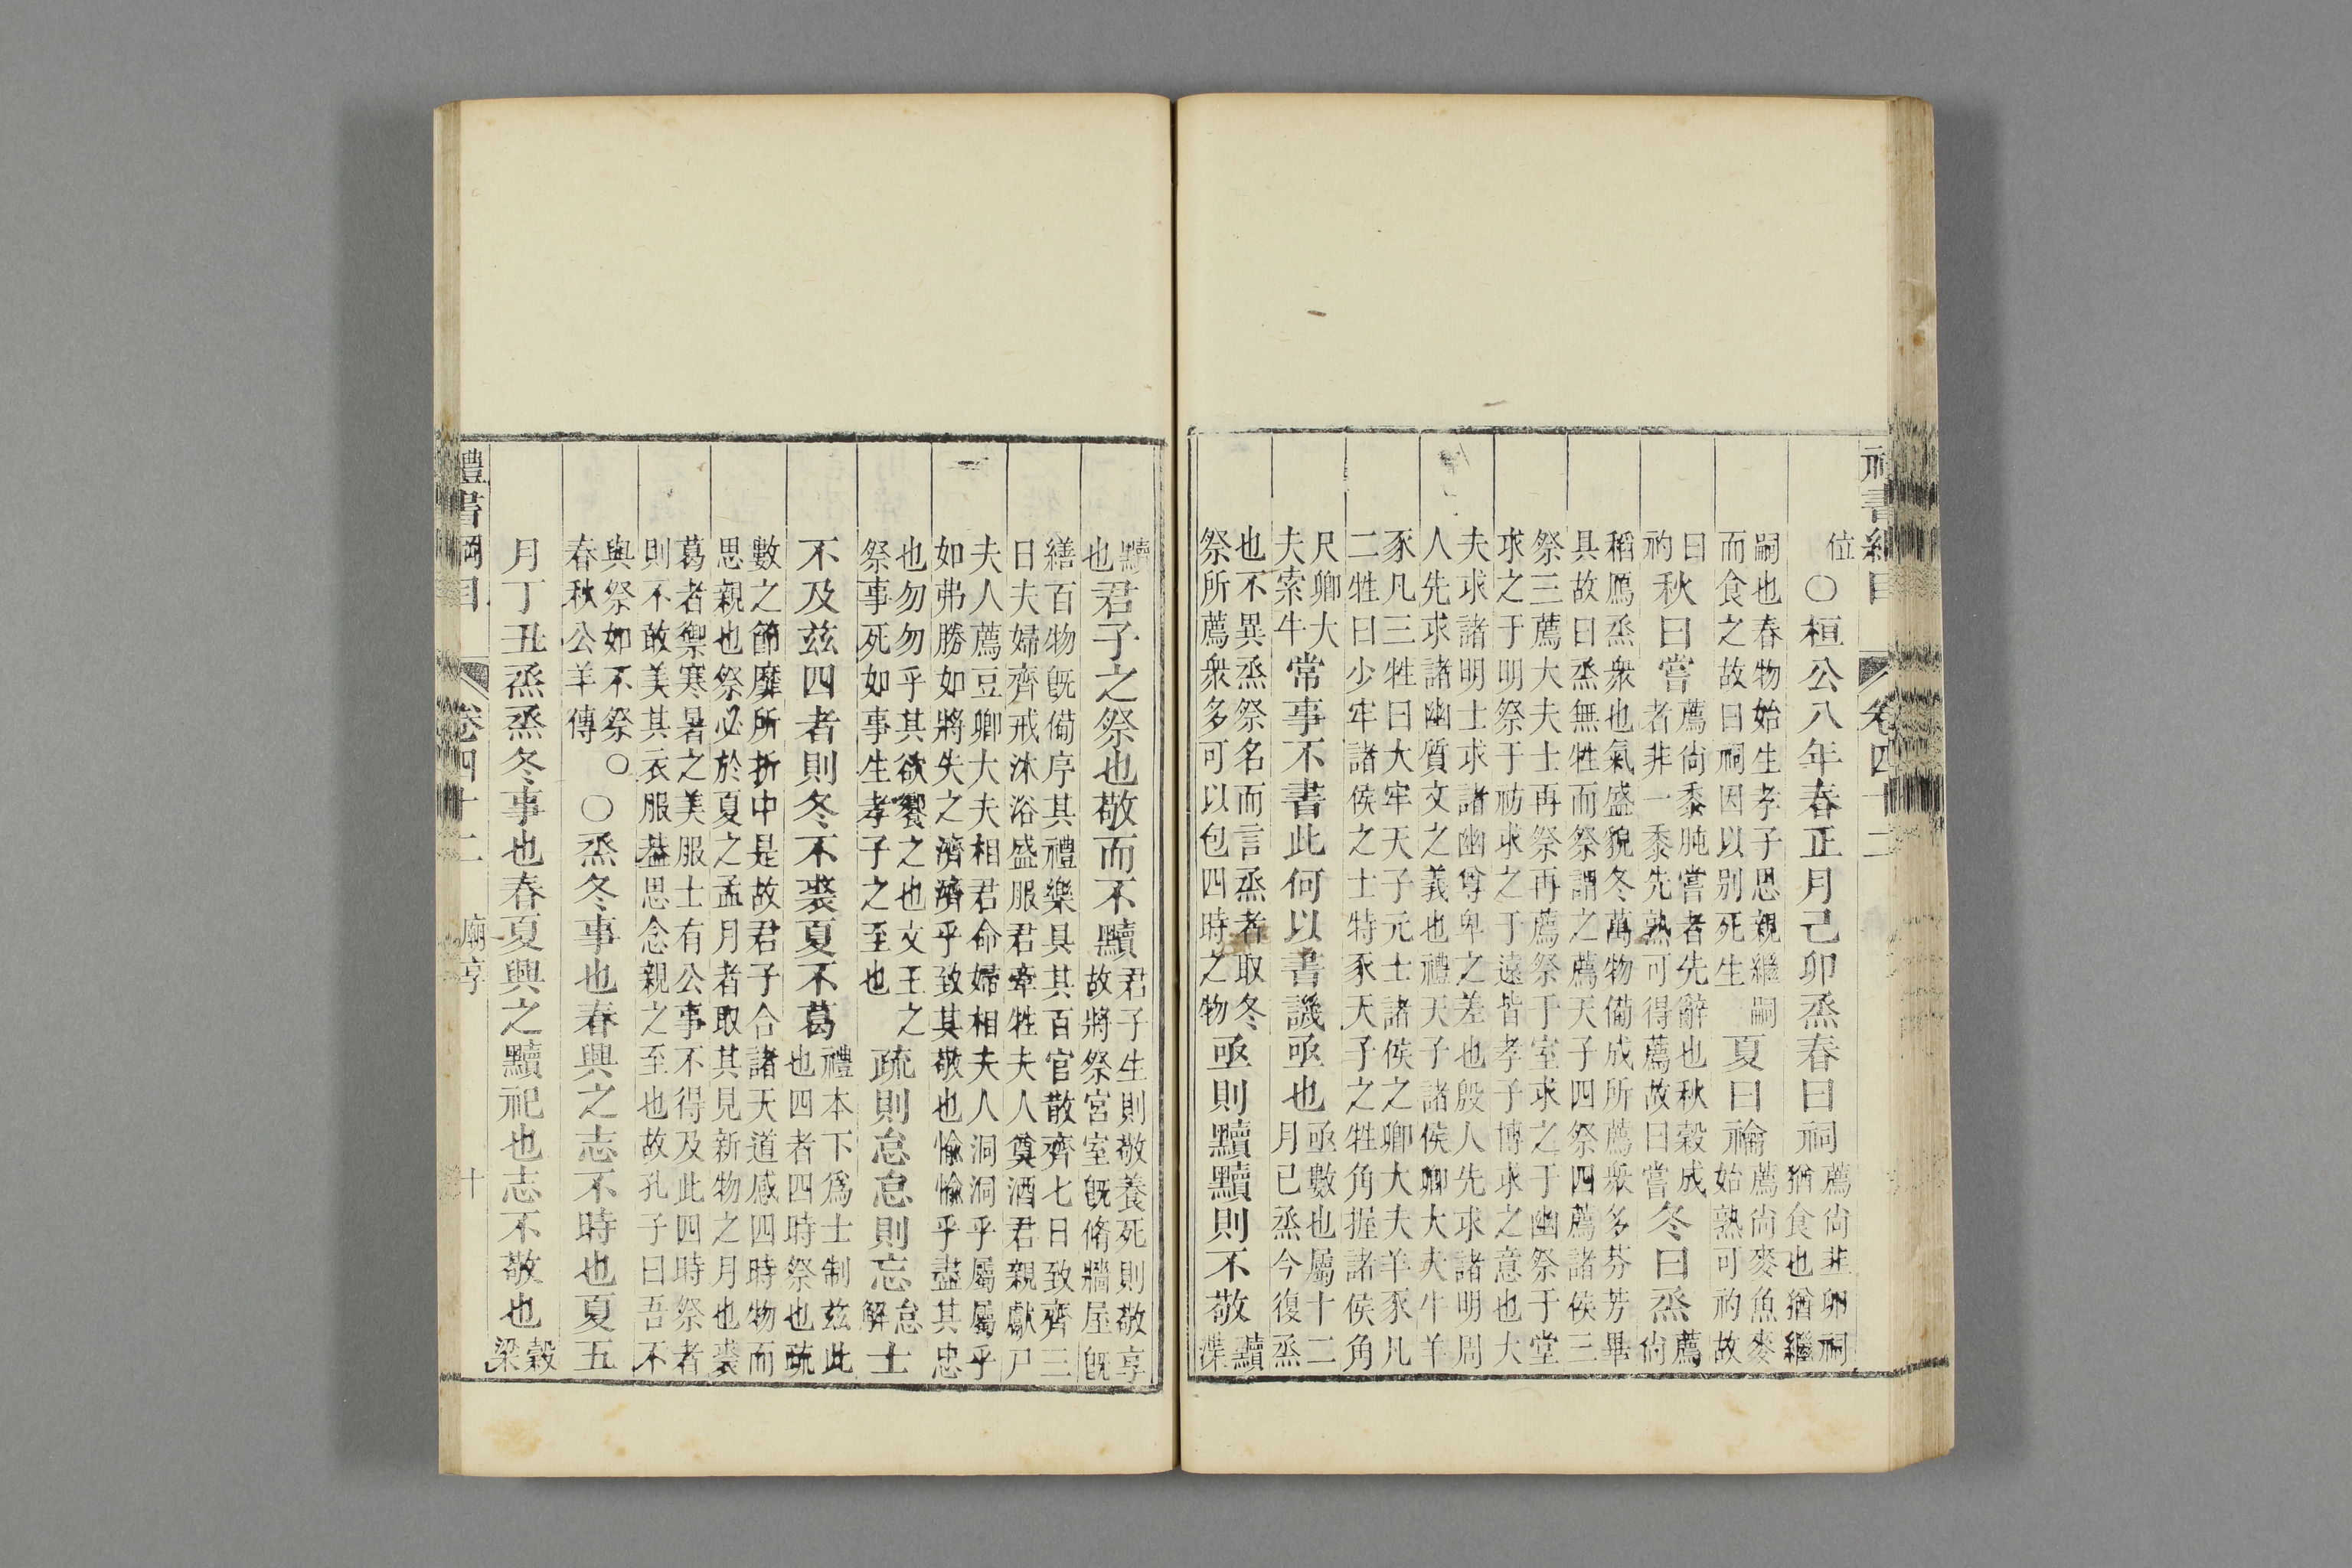 禮書綱目 卷四十二
位○桓公八年春正月己卯烝春曰祠薦尚韭卵祠猶食也猶繼
嗣也春物始生孝子思親繼嗣而食之故曰祠因以別死生夏曰禴薦尚麥魚麥始熟可礿故
曰礿秋曰嘗薦尚黍肫嘗者先辭也秋穀成者非一黍先熟可得薦故曰嘗冬曰烝薦尚
稻鴈烝衆也氣盛貌冬萬物備成所薦衆多芬芳畢具故曰烝無牲而祭謂之薦天子四祭四薦諸侯三
祭三薦大夫士再祭再薦祭于室求之于幽祭于堂求之于明祭于祊求之于遠皆孝子博求之意也大
夫求諸明士求諸幽尊卑之差也殷人先求諸明周人先求諸幽質文之義也禮天子諸侯卿大夫牛羊
豕凡三牲曰大牢天子元士諸侯之卿大夫羊豕凡二牲曰少牢諸侯之士特豕天子之牲角握諸侯角
尺卿大夫索牛常事不書此何以書譏亟也亟數也屬十二月已烝今復烝
也不異烝祭名而言烝者取冬祭所薦衆多可以包四時之物亟則黷黷則不敬黷渫
黷也君子之祭也敬而不黷君子生則敬養死則敬享故將祭宮室旣脩牆屋旣
繕百物旣備序其禮樂具其百官散齊七日致齊三日夫婦齊戒沐浴盛服君牽牲夫人奠酒君親獻尸
夫人薦豆卿大夫相君命婦相夫人洞洞乎屬屬乎如弗勝如將失之濟濟乎致其敬也愉愉乎盡其忠
也勿勿乎其欲饗之也文王之祭事死如事生孝子之至也疏則怠怠則忘怠解士
不及茲四者則冬不裘夏不葛禮本下爲士制茲此也四者四時祭也疏
數之節靡所折中是故君子合諸天道感四時物而思親也祭必於夏之孟月者取其見新物之月也裘
葛者禦寒暑之美服士有公事不得及此四時祭者則不敢美其衣服葢思念親之至也故孔子曰吾不
與祭如不祭○春秋公羊傳○烝冬事也春興之志不時也夏五
月丁丑烝烝冬事也春夏興之黷祀也志不敬也穀梁
禮書綱目 卷四十二 廟享 十